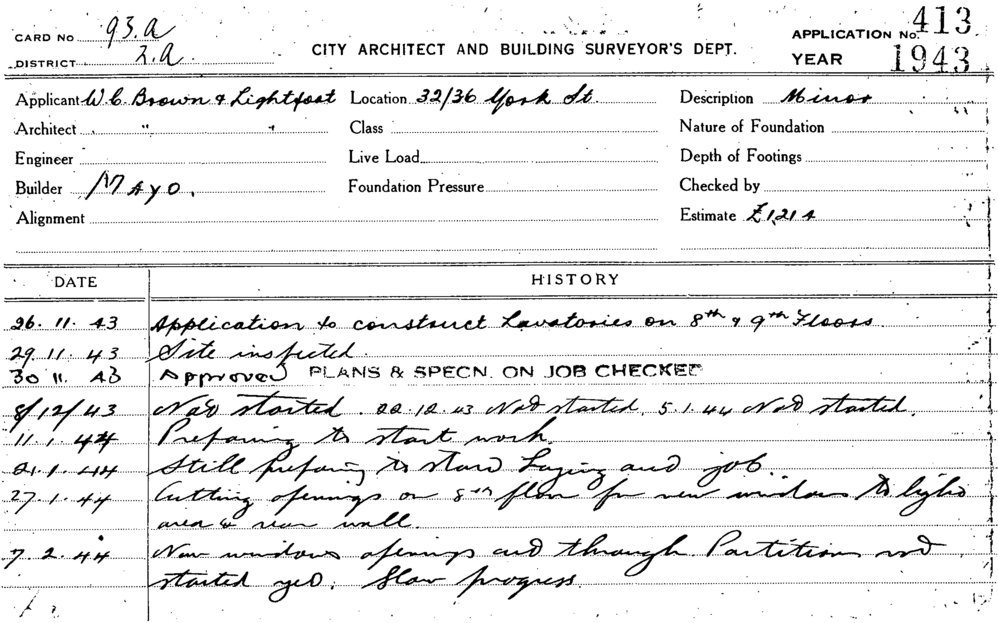 CARD No 93.a
DISTRICT 2.a
CITY ARCHITECT AND BUILDING SURVEYOR'S DEPT.
APPLICATION No. 413
YEAR 1943
Applicant W.C. Brown & Lightfoot Location 32/36 York St. Description Minor
Architect " " Class Nature of Foundation
Engineer Live Load Depth of Footings
Builder MAYO. Foundation Pressure Checked by
Alignment Estimate £1,214
DATE HISTORY
26. 11. 43 Application to construct Lavatories on 8th & 9th Floors
29. 11. 43 Site inspected.
30 11. 43 Approved PLANS & SPECN. ON JOB CHECKED
8/12/43 Not started. 22.12.43 Not started. 5.1.44 Not started.
11. 1. 44 Preparing to start work.
21. 1. 44 Still preparing to start Laying out job.
27. 1. 44 Cutting openings on 8th floor for new windows to light
area & rear wall.
7. 2. 44 New windows openings cut through. Partitions not
started yet. Slow progress.